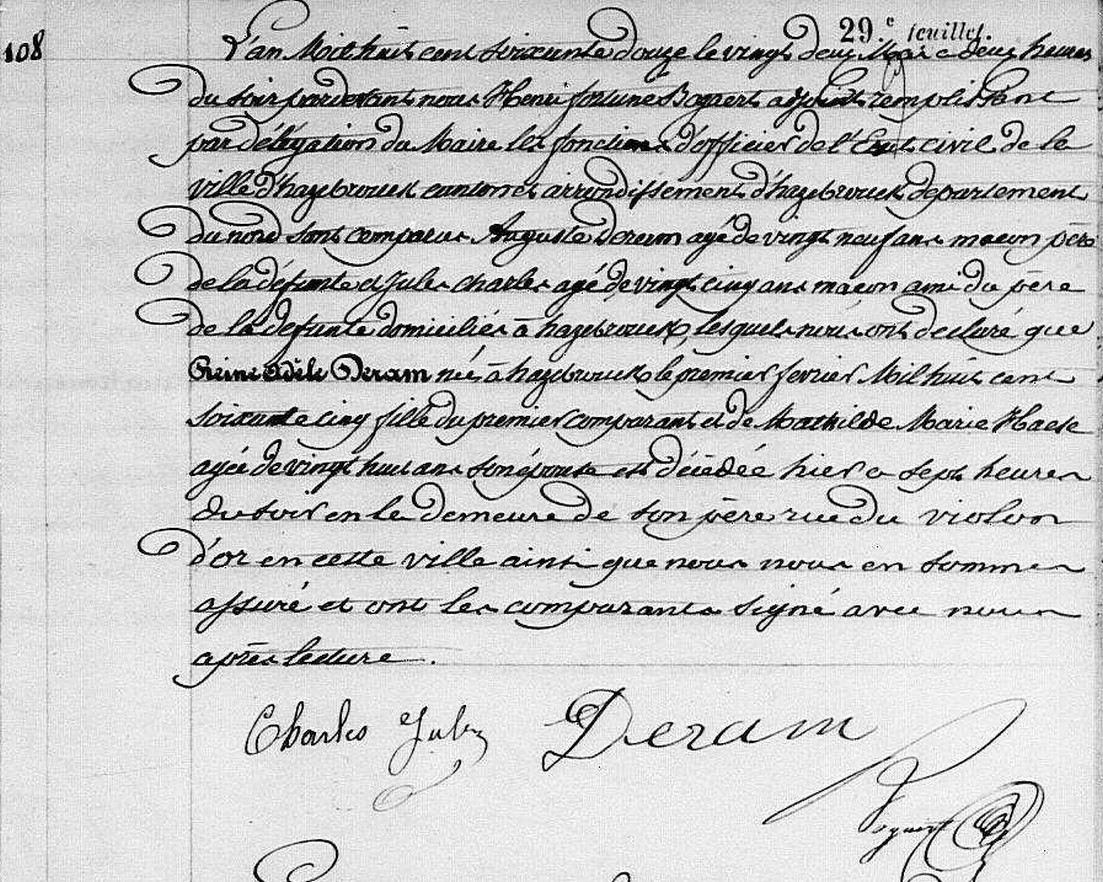 29.e feuillet.
108
L'an Mil huit cent soixante douze le vingt deux Mai a deux heures
du soir pardevant nous Henri fortuné Bogaert adjoint remplissant
par délégation du Maire les fonctions d'officier de l'Etat civil de la
ville d'hazebrouck canton et arrondissement d'hazebrouck département
du nord sont comparus Auguste Deram agé de vingt neuf ans macon père
de la défunte et Jules Charles agé de vingt cinq ans macon ami du père
de la defunte domiciliés à hazebrouck, lesquels nous ont declaré que
Reine Adèle Deram née à hazebrouck le premier fevrier Mil huit cent
soixante cinq fille du premier comparant et de Mathilde Marie Haese
agée de vingt huit ans son épouse est décédée hier a sept heures
du soir en la demeure de son père rue du violon
d'or en cette ville ainsi que nous nous en sommes
assuré et ont les comparants signé avec nous
après lecture.
Charles Jules Deram
Bogaert